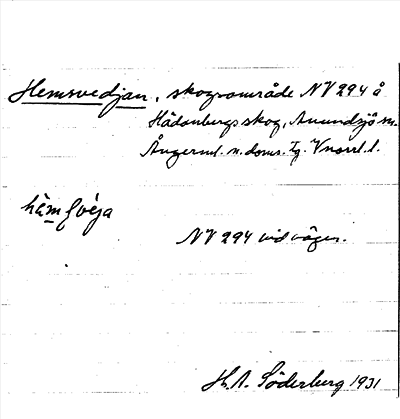 Hemsvedjan, skogsområde NV 294 å
Hädanbergs skog, Anundsjö sn.
Ångerml. n. doms. tg. Vnorrl. l.
NV 294 vid vägen.
H. A. Söderberg 1931